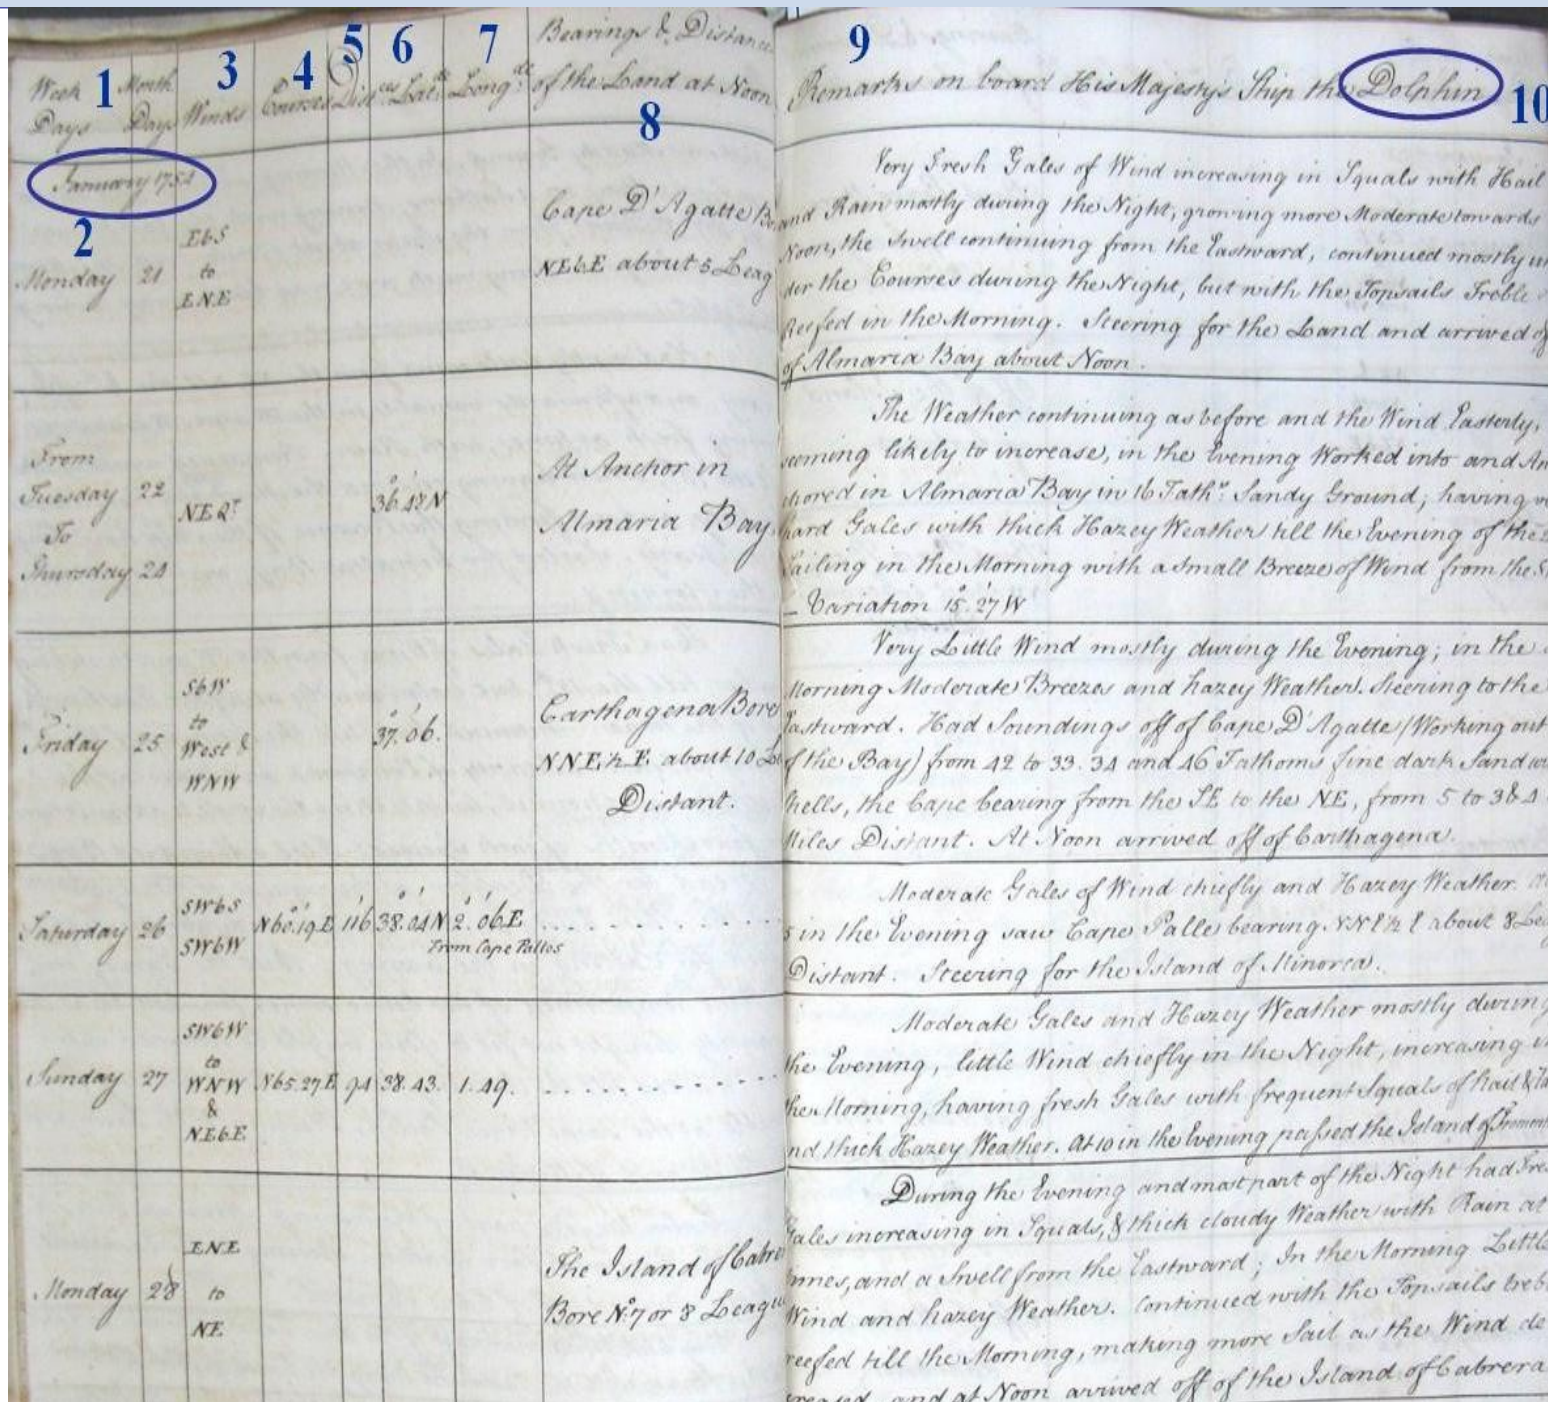 1 2 3 4 5 6 7 8 9 10
Week Days
Month Days
Winds
Courses
Dist.ces
Lat.de
Long.de
Bearings & Distance
of the Land at Noon
Remarks on board His Majesty's Ship the Dolphin
January 1754
Monday 21
E b S
to
E N E
Cape D'Agatte
N E b E about 5 Leag
Very Fresh Gales of Wind increasing in Squals with Hail
and Rain mostly during the Night, growing more Moderate towards
Noon, the Swell continuing from the Eastward, continued mostly un
der the Courses during the Night, but with the Topsails Treble
Reefed in the Morning. Steering for the Land and arrived of
of Almaria Bay about Noon.
From
Tuesday 22
To
Thursday 24
N E Q.r
36°.48' N
At Anchor in
Almaria Bay.
The Weather continuing as before and the Wind Easterly,
seeming likely to increase, in the Evening Worked into and An
chored in Almaria Bay in 16 Fath.s Sandy Ground; having
hard Gales with thick Hazey Weather till the Evening of the
Sailing in the Morning with a small Breeze of Wind from the
– Variation 15°.27' W
Friday 25
S b W
to
West &
WNW
37°.06'.
Carthagena Bore
N N E ½ E about 10
Distant.
Very Little Wind mostly during the Evening; in the
Morning Moderate Breezes and hazey Weather. Steering to the
Eastward. Had Soundings off of Cape D'Agatte (Working out
of the Bay) from 42 to 33. 34 and 46 Fathoms fine dark Sand
Shells, the Cape bearing from the SE to the NE, from 5 to 3 & 4
Miles Distant. At Noon arrived off of Carthagena.
Saturday 26
SWbS
SWbW
N 60°.19' E 116 38°.04' N 2°.06' E
From Cape Pallos
Moderate Gales of Wind chiefly and Hazey Weather.
5 in the Evening saw Cape Palle bearing N N E ½ E about 8 Lea
Distant. Steering for the Island of Minorca.
Sunday 27
SWbW
to
WNW
&
NEbE
N 65.27.E 94 38.43. 1.49.
Moderate Gales and Hazey Weather mostly during
the Evening, little Wind chiefly in the Night, increasing in
the Morning, having fresh Gales with frequent Squals of hail &
and thick Hazey Weather. At 10 in the Evening passed the Island of
Monday 28
ENE
to
NE
The Island of Cabre
Bore N.o 7 or 8 League
During the Evening and most part of the Night had Fre
Gales increasing in Squals, & thick cloudy Weather with Rain at
times, and a Swell from the Eastward; In the Morning Little
Wind and hazey Weather. Continued with the Topsails treb
reefed till the Morning, making more Sail as the Wind de
creased, and at Noon arrived off of the Island of Cabrera